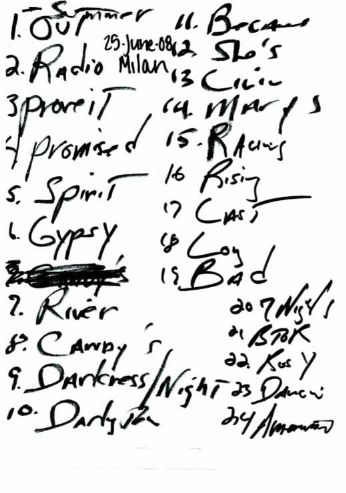 Summer
1. OUT
25-June-08
2. Radio Milan
3 prove iT
4 promised
5. Spirit
6. Gypsy
7. River
8. Candy's
9. Darkness/Night
10. Darlington
11. Because
12. She's
13 Cadillac
14. Mary's
15. Racing
16 Rising
17 Last
18 Long
19. Bad
20 7 Nights
21 BTOR
22. Rosy
23 Dancin
24 American